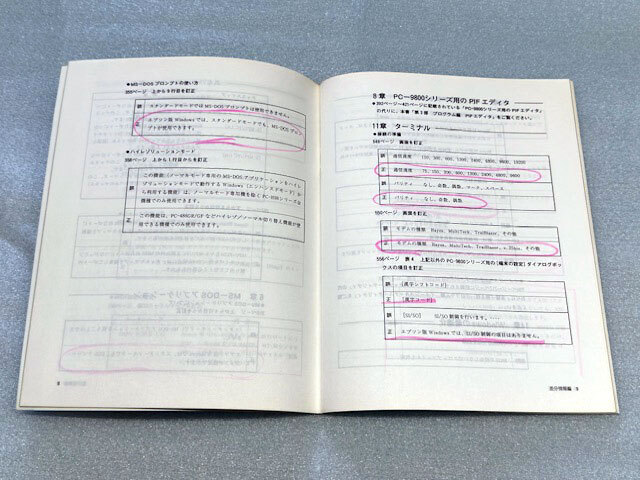 ●MS-DOSプロンプトの使い方
355ページ 上から5行目を訂正
誤 スタンダードモードではMS-DOSプロンプトは使用できません。
正 エプソン版Windowsでは、スタンダードモードでも、MS-DOSプロン
プトが使用できます。
●ハイレゾリューションモード
358ページ 上から1行目からを訂正
この機能(ノーマルモード専用のMS-DOSアプリケーションをハイレ
誤 ゾリューションモードで動作するWindows(エンハンスドモード)か
ら利用する機能)は、ノーマルモード専用機を除くPC-9800シリーズ全
機種でのみ使用できます。
正 この機能は、PC-486GR/GFなどハイレゾ/ノーマル切り替え機能が使
用できる機種でのみ使用できます。
8
8章 PC-9800シリーズ用のPIFエディタ
●393ページ〜421ページに記載されている「PC-9800シリーズ用のPIFエディタ」
の代りに、本書「第1部 プログラム編 PIFエディタ」をご覧ください。
11章 ターミナル
●接続の準備
549ページ 画面を訂正
誤 通信速度 150, 300, 600, 1200, 2400, 4800, 9600, 19200
正 通信速度 75, 150, 300, 600, 1200, 2400, 4800, 9600
誤 パリティ なし, 奇数, 偶数, マーク, スペース
正 パリティ なし, 奇数, 偶数
550ページ 画面を訂正
誤 モデムの種類 Hayes, MultiTech, TrailBlazer, その他
正 モデムの種類 Hayes, MultiTech, TrailBlazer, Epson, その他
556ページ 表4 上記以外のPC-9800シリーズ用の[端末の設定]ダイアログボッ
クスの項目を訂正
誤 [漢字シフトコード]
正 [漢字コード]
誤 [SI/SO] SI/SO制御を行います。
正 エプソン版Windowsでは、SI/SO制御の項目はありません。
差分情報編 9